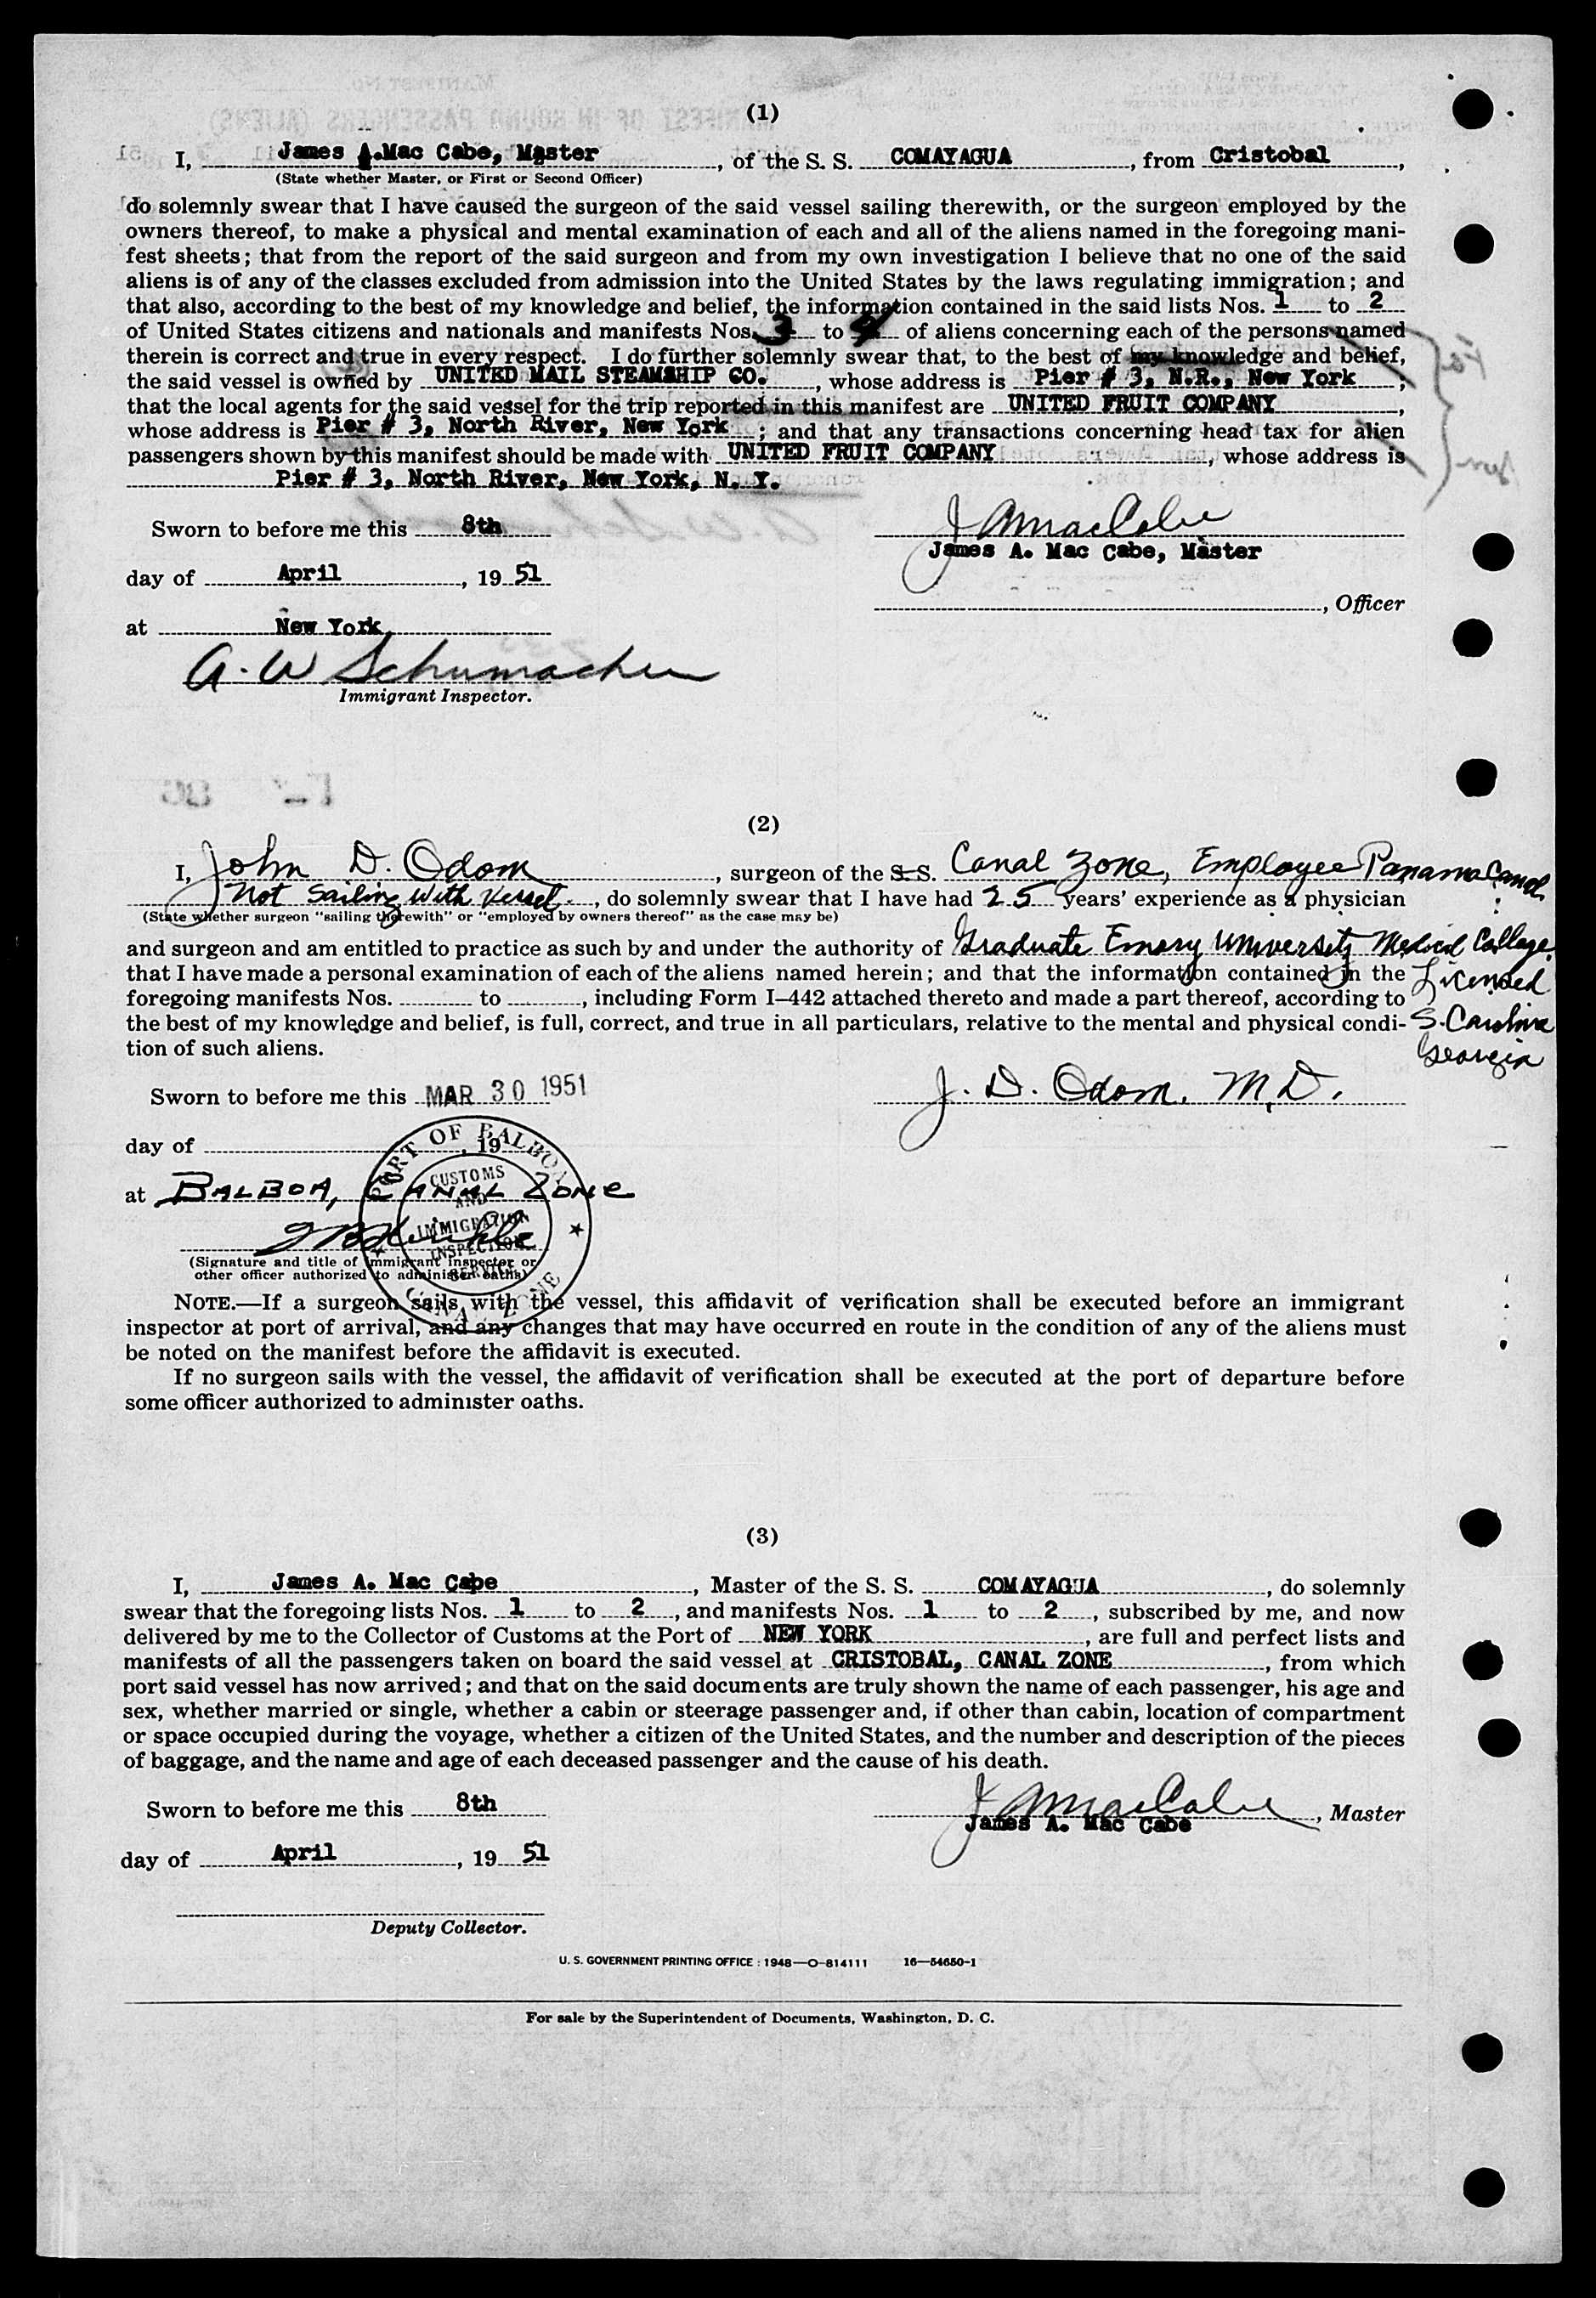 (1)
I, James A. Mac Cabe, Master, of the S. S. COMAYAGUA, from Cristobal,
(State whether Master, or First or Second Officer)
do solemnly swear that I have caused the surgeon of the said vessel sailing therewith, or the surgeon employed by the
owners thereof, to make a physical and mental examination of each and all of the aliens named in the foregoing mani-
fest sheets; that from the report of the said surgeon and from my own investigation I believe that no one of the said
aliens is of any of the classes excluded from admission into the United States by the laws regulating immigration; and
that also, according to the best of my knowledge and belief, the information contained in the said lists Nos. 1 to 2
of United States citizens and nationals and manifests Nos. 3 to 4 of aliens concerning each of the persons named
therein is correct and true in every respect. I do further solemnly swear that, to the best of my knowledge and belief,
the said vessel is owned by UNITED MAIL STEAMSHIP CO., whose address is Pier # 3, N.R., New York;
that the local agents for the said vessel for the trip reported in this manifest are UNITED FRUIT COMPANY,
whose address is Pier # 3, North River, New York; and that any transactions concerning head tax for alien
passengers shown by this manifest should be made with UNITED FRUIT COMPANY, whose address is
Pier # 3, North River, New York, N. Y.
Sworn to before me this 8th
J A MacCabe
James A. Mac Cabe, Master
day of April, 19 51
, Officer
at New York,
A. W Schumacher
Immigrant Inspector.
(2)
I, John D. Odom, surgeon of the S. S. Canal Zone, Employee Panama Canal
Not Sailing With Vessel, do solemnly swear that I have had 25 years' experience as a physician
(State whether surgeon "sailing therewith" or "employed by owners thereof" as the case may be)
and surgeon and am entitled to practice as such by and under the authority of Graduate Emory University Medical College;
that I have made a personal examination of each of the aliens named herein; and that the information contained in the
Licensed
foregoing manifests Nos. to , including Form I–442 attached thereto and made a part thereof, according to
the best of my knowledge and belief, is full, correct, and true in all particulars, relative to the mental and physical condi-
S. Carolina
tion of such aliens.
Georgia
Sworn to before me this MAR 30 1951
J. D. Odom, M.D.
day of , 19
at BALBOA, CANAL ZONE
PORT OF BALBOA
CUSTOMS
AND
IMMIGRATION
INSPECTION
SERVICE
CANAL ZONE
(Signature and title of immigrant inspector or
other officer authorized to administer oaths)
NOTE.—If a surgeon sails with the vessel, this affidavit of verification shall be executed before an immigrant
inspector at port of arrival, and any changes that may have occurred en route in the condition of any of the aliens must
be noted on the manifest before the affidavit is executed.
If no surgeon sails with the vessel, the affidavit of verification shall be executed at the port of departure before
some officer authorized to administer oaths.
(3)
I, James A. Mac Cabe, Master of the S. S. COMAYAGUA, do solemnly
swear that the foregoing lists Nos. 1 to 2, and manifests Nos. 1 to 2, subscribed by me, and now
delivered by me to the Collector of Customs at the Port of NEW YORK, are full and perfect lists and
manifests of all the passengers taken on board the said vessel at CRISTOBAL, CANAL ZONE, from which
port said vessel has now arrived; and that on the said documents are truly shown the name of each passenger, his age and
sex, whether married or single, whether a cabin or steerage passenger and, if other than cabin, location of compartment
or space occupied during the voyage, whether a citizen of the United States, and the number and description of the pieces
of baggage, and the name and age of each deceased passenger and the cause of his death.
Sworn to before me this 8th
J A MacCabe, Master
James A. Mac Cabe
day of April, 19 51
Deputy Collector.
U. S. GOVERNMENT PRINTING OFFICE : 1948—O-814111 16—54650-1
For sale by the Superintendent of Documents, Washington, D. C.